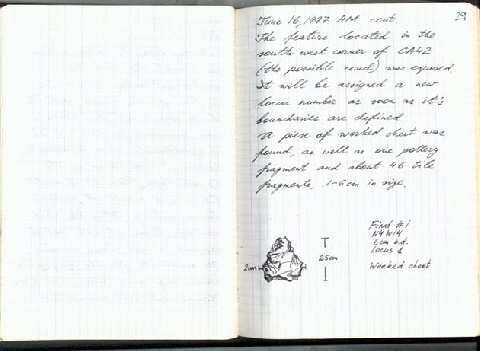 29
June 16, 1997 AM cont.
The feature located in the
south west corner of CA42
(the possible ) was exposed
It will be assigned a new
locus number as soon as it's
boundaries are defined
A piese of worked chert was
found, as well as one pottery
fragment and about 46 tile
fragments, 1-6 cm in size.
Find #1
N4 W14
6 cm b.d.
Locus 1
Worked chert
2cm
2.5cm